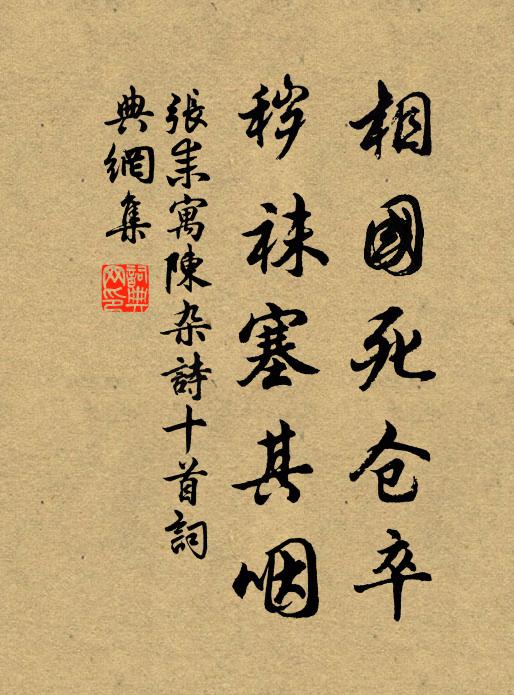 相國死仓卒
秽袜塞其咽
張耒寓陳杂詩十首詞
典網集
詞典
网印